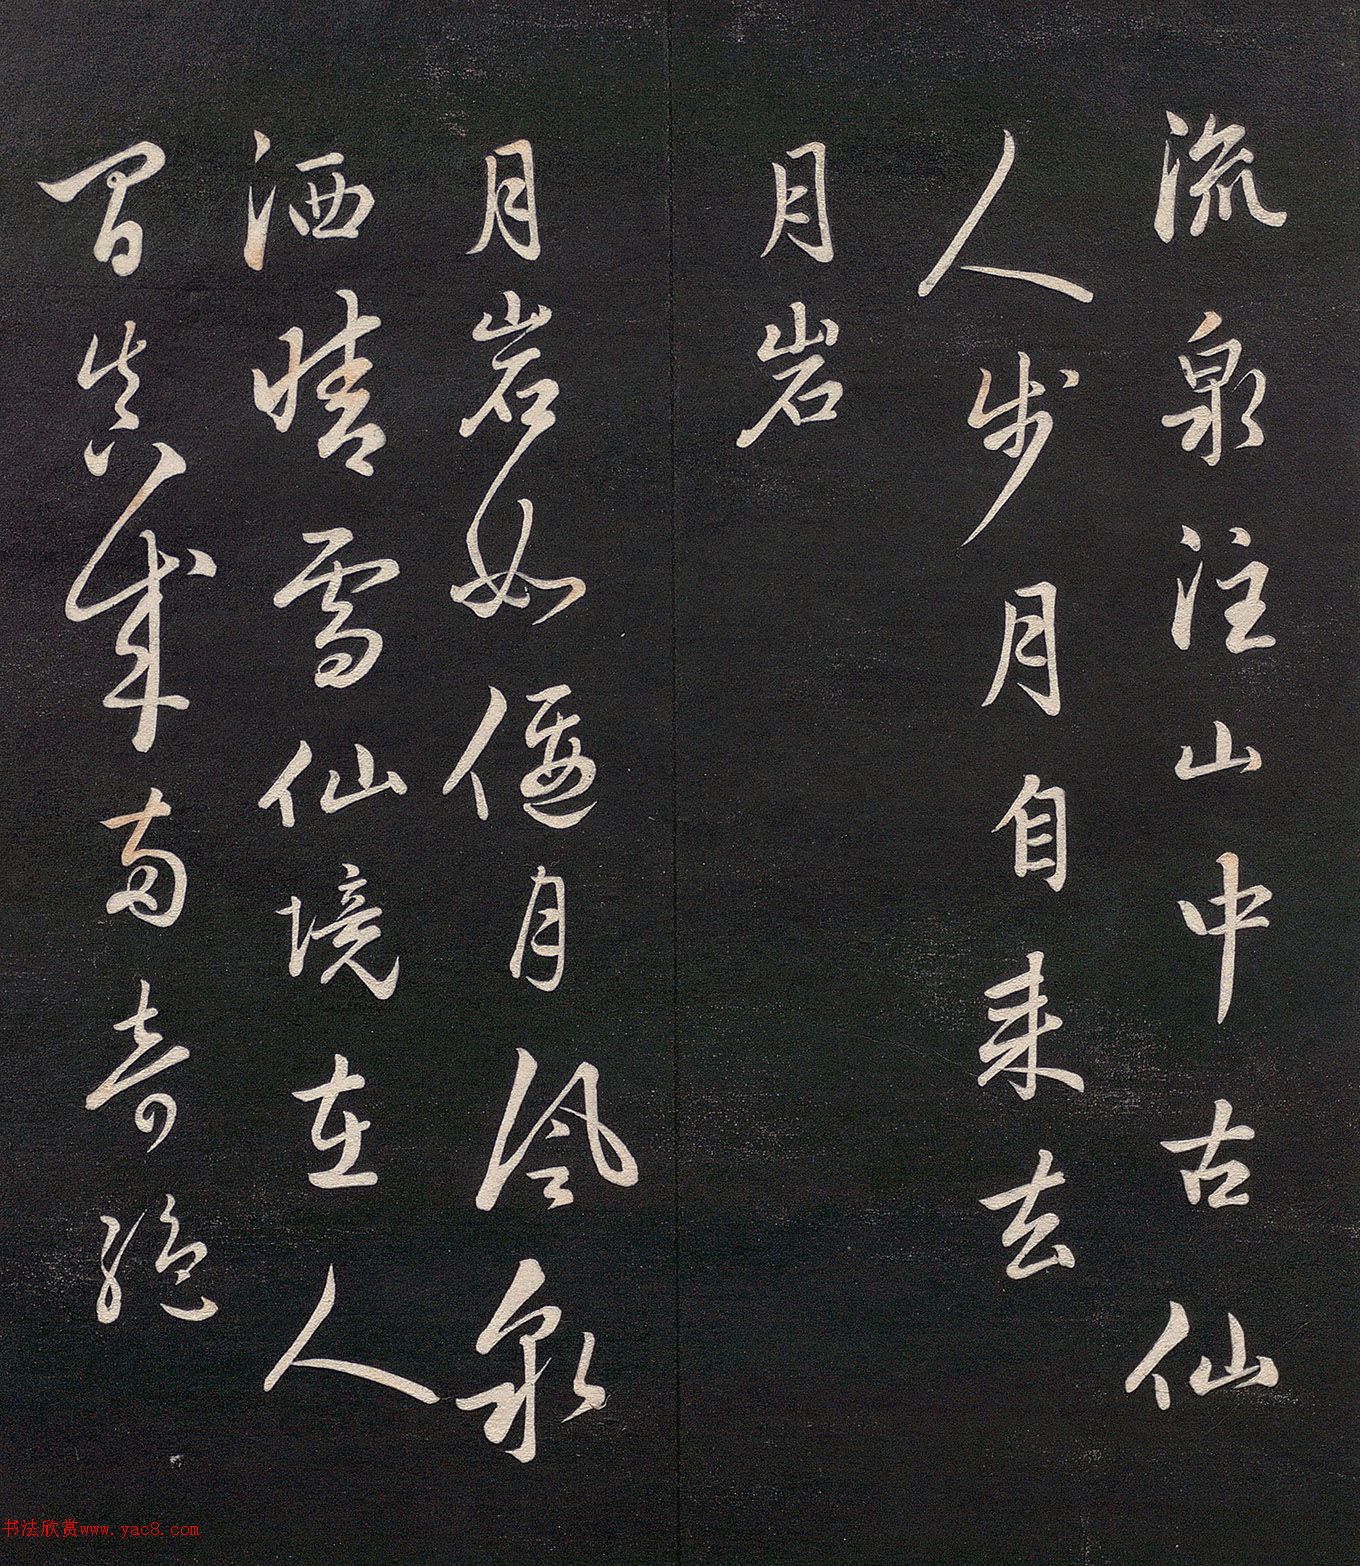 流泉注山中古仙
人步月自来去
月岩
月岩如偃月風泉
洒晴雪仙境在人
間真成兩奇絶
书法欣赏www.yac8.com